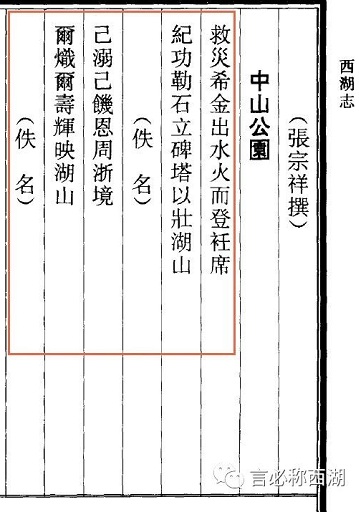 西湖志
（張宗祥撰）
中山公園
救災希金出水火而登衽席
紀功勒石立碑塔以壯湖山
（佚名）
己溺己饑恩周浙境
爾熾爾壽輝映湖山
（佚名）
言必称西湖